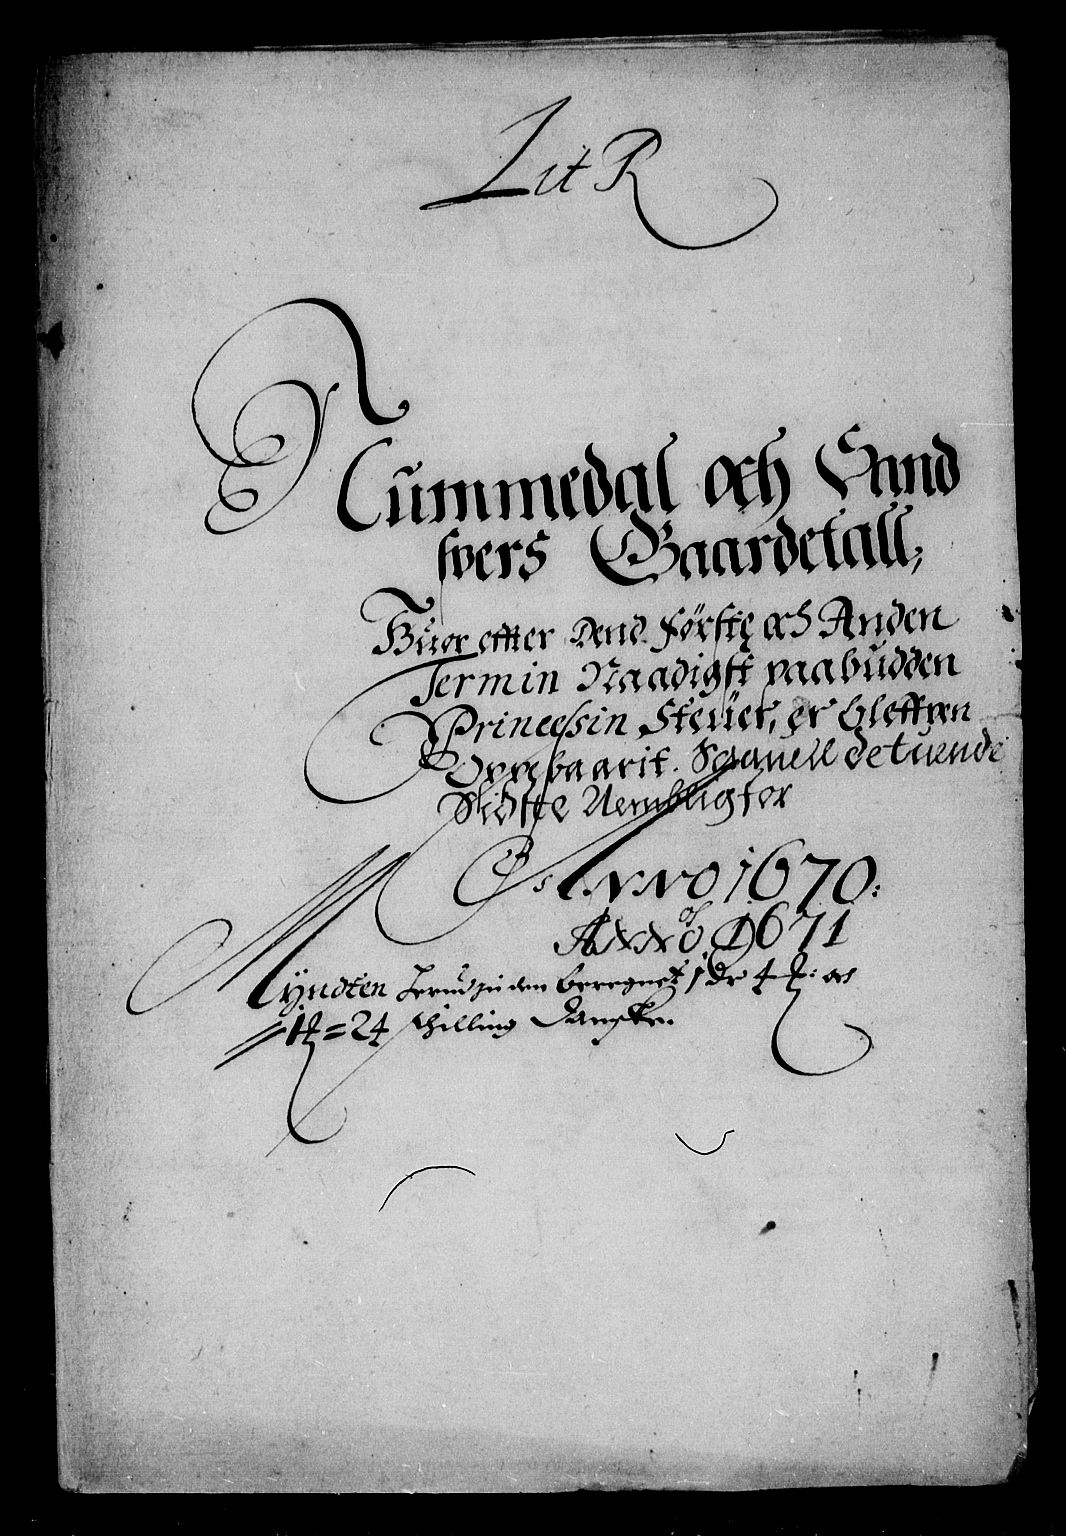 Lit R
Nummedal och Sand
svers Gaardetall,
Huor effter Dend førfte och Anden
Termin Naadigst paabudden
Princessin Steuer, er bleffven
Oppebaarit. Saauell detuende
Skøtte Nemblig for
Anno 1670:
Anno 1671
Myndten herudj er beregnet j dr 4 och
1 = 24 schilling Danske.